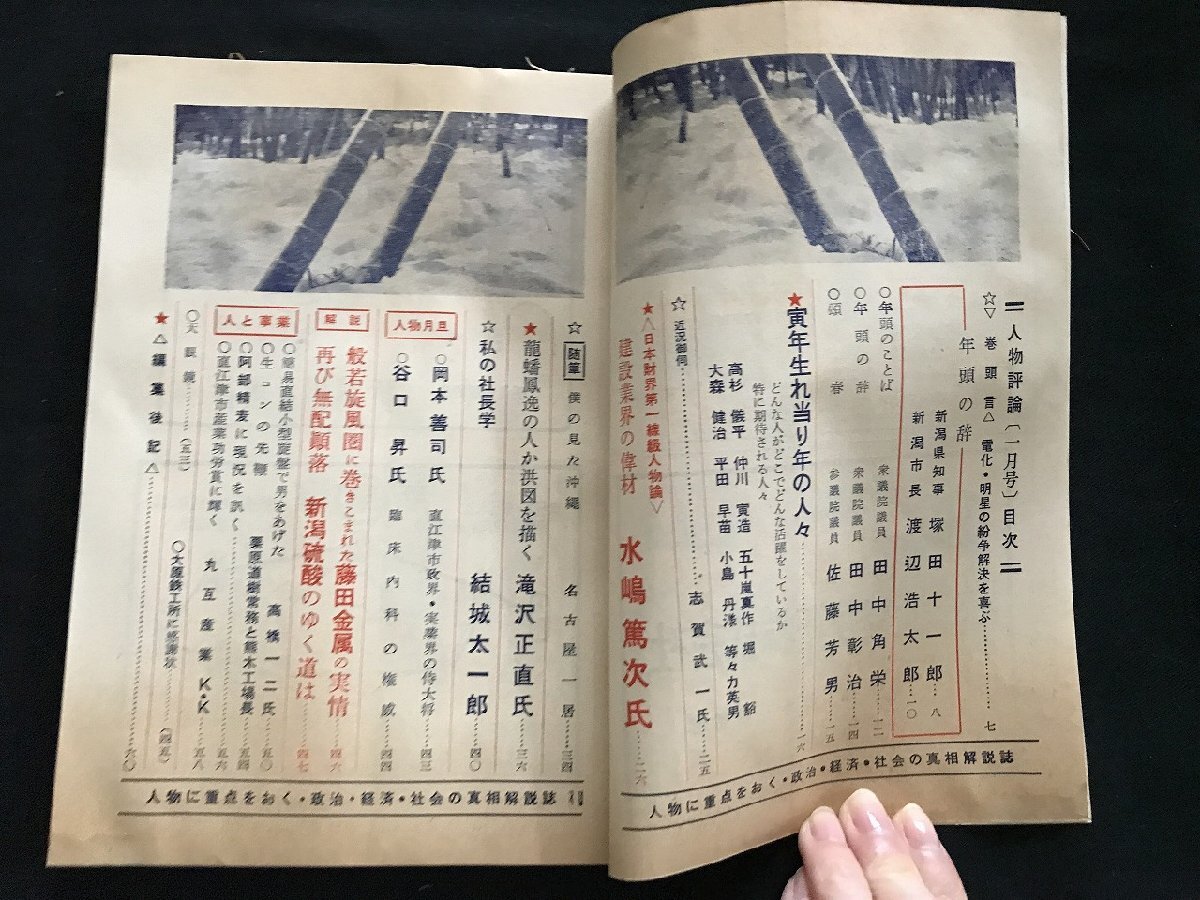 人物評論〔一月号〕目次
☆▽巻頭言△ 電化・明星の紛争解決を喜ぶ……七
年頭の辞
新潟県知事 塚田十一郎…八
新潟市長 渡辺浩太郎…一〇
○年頭のことば 衆議院議員 田中角栄…一二
○年頭の辞 衆議院議員 田中彰治…一四
○頌春 参議院議員 佐藤芳男…一五
★寅年生れ当り年の人々……一六
どんな人がどこでどんな活躍をしているか
特に期待される人々
高杉儀平 仲川寅造 五十嵐真作 堀豁
大森健治 平田早苗 小島丹漾 等々力英男
☆近況御伺……志賀武一氏……二五
★△日本財界第一線級人物論▽
建設業界の偉材 水嶋篤次氏……二六
人物に重点をおく・政治・経済・社会の真相解説誌
☆随筆 僕の見た沖縄 名古屋一居……三四
★龍蟠鳳逸の人か洪図を描く 滝沢正直氏……三六
☆私の社長学 結城太一郎……四〇
人物月旦
○岡本善司氏 直江津市政界・実業界の侍大将……四三
○谷口昇氏 臨床内科の権威……四四
解説
般若旋風圏に巻きこまれた藤田金属の実情……四六
再び無配顚落 新潟硫酸のゆく道は……四七
人と事業
○簡易直結小型旋盤で男をあげた 高橋一二氏……五〇
○生コンの先柳 栗原道樹常務と熊木工場長……五四
○阿部精麦に現況を訊く……五六
○直江津市産業功労賞に輝く 丸互産業K・K……五八
○大眼鏡……(五三)
○大原鉄工所に感謝状……(四五)
★△編集後記△……六〇
人物に重点をおく・政治・経済・社会の真相解説誌